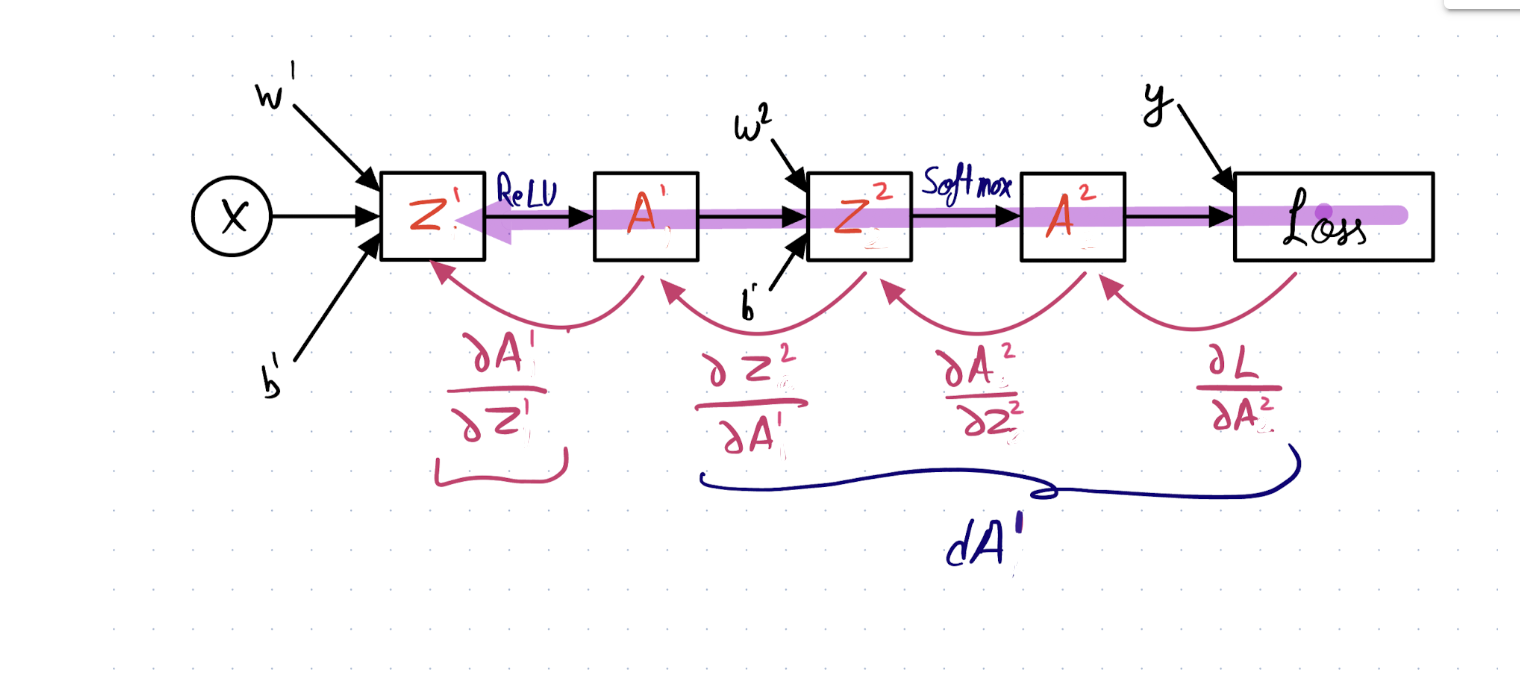 w¹
w²
y
X
Z¹
ReLU
A¹
Z²
Softmax
A²
Loss
b¹
b¹
∂A¹
∂Z¹
∂Z²
∂A¹
∂A²
∂Z²
∂L
∂A²
dA¹